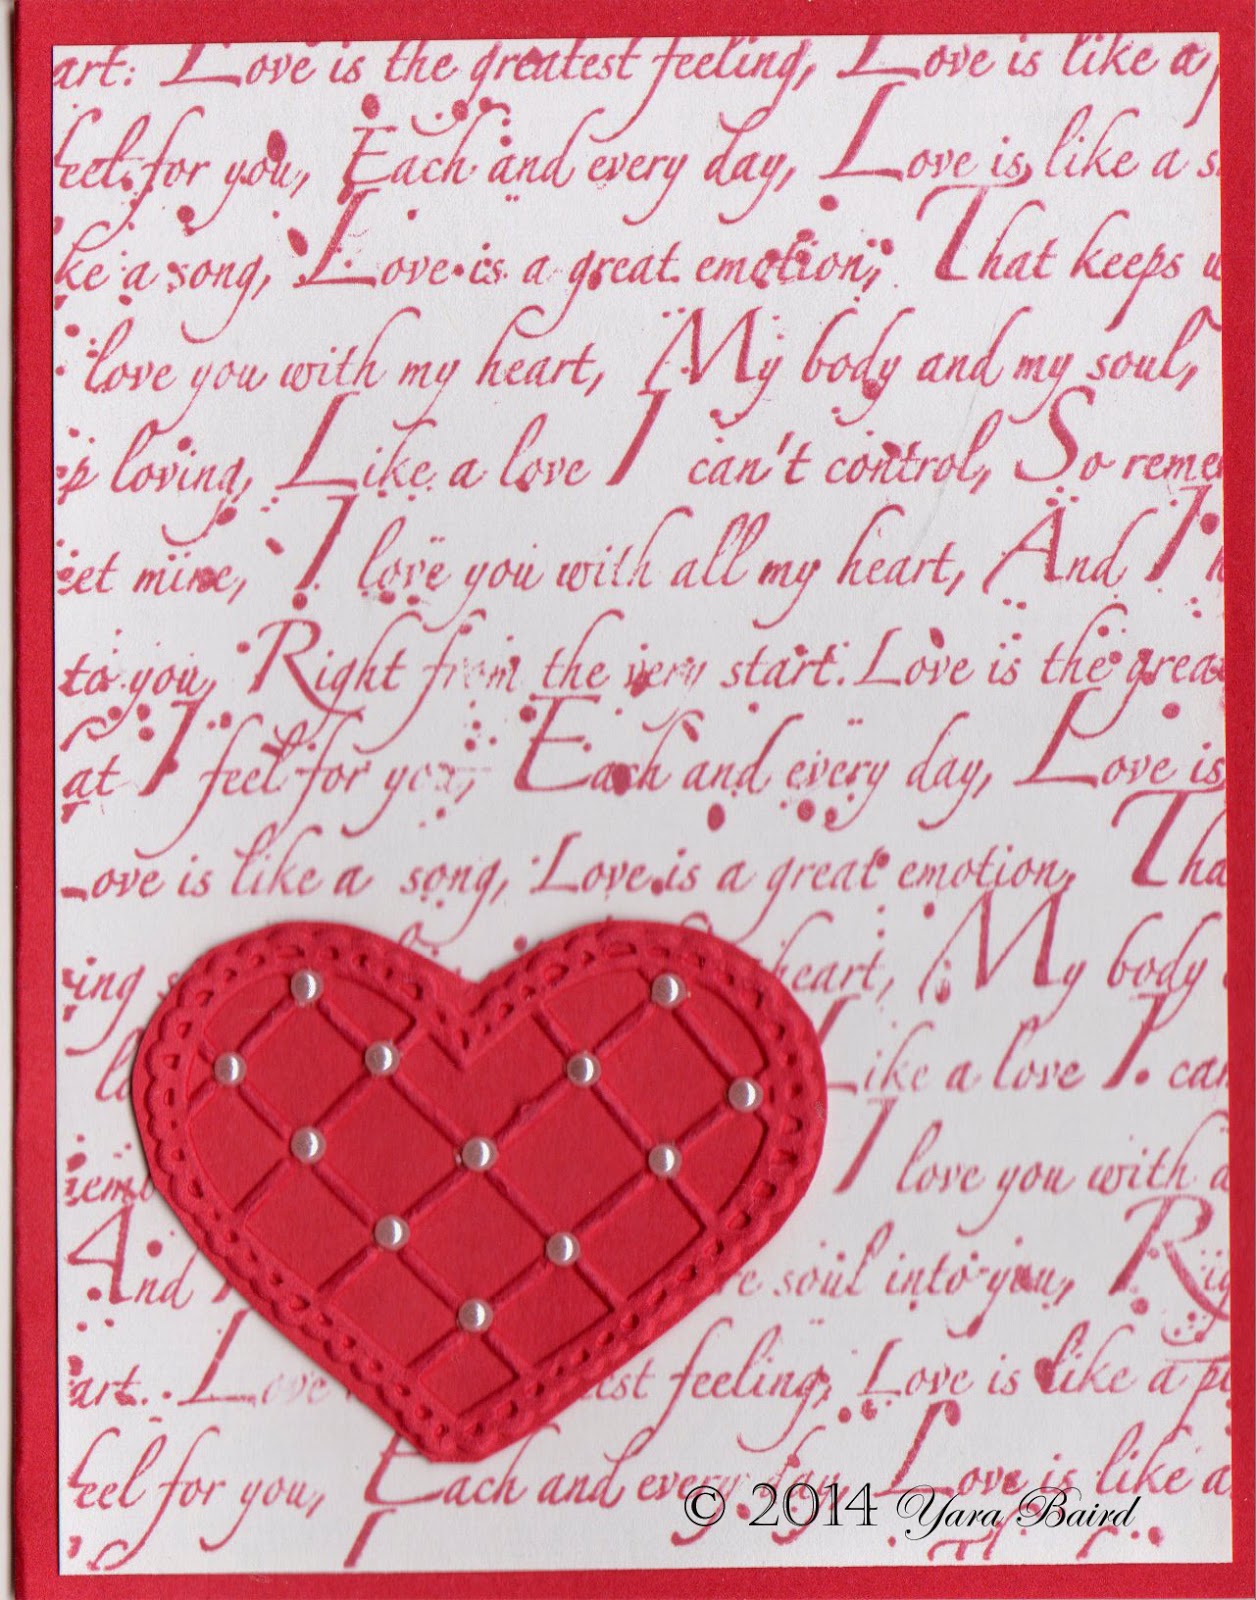 art: Love is the greatest feeling, Love is like a
feel for you, Each and every day, Love is like a
ke a song, Love is a great emotion, That keeps
love you with my heart, My body and my soul,
p loving, Like a love I can't control, So reme
et mine, I love you with all my heart, And I
to you, Right from the very start. Love is the grea
at I feel for you, Each and every day, Love is
Love is like a song, Love is a great emotion, Tha
ing heart, My body
Like a love I can
emb I love you with a
And soul into you, Rig
art. Love est feeling, Love is like a
feel for you, Each and every day, Love is like a
© 2014 Yara Baird